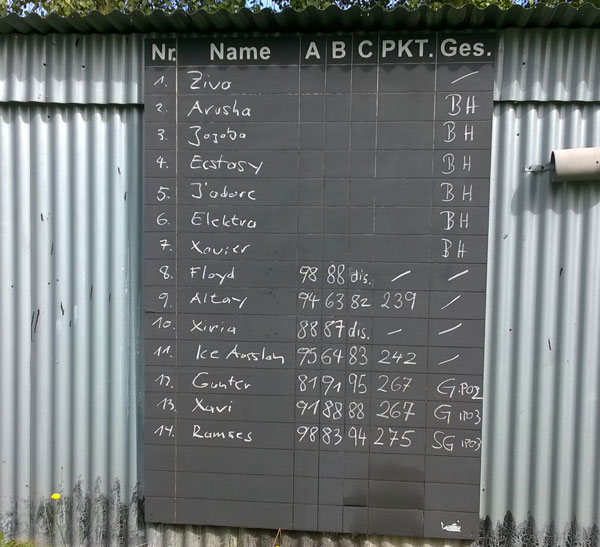 Nr. Name A B C PKT. Ges.
1. Ziva –
2. Arusha BH
3. Jojoba BH
4. Ecstasy BH
5. J'adore BH
6. Elektra BH
7. Xavier BH
8. Floyd 98 88 dis. – –
9. Altay 94 63 82 239 –
10. Xiria 88 87 dis. – –
11. Ice 95 64 83 242 –
12. Gunter 81 91 95 267 G. IPO2
13. Xavi 91 88 88 267 G IPO3
14. Ramses 98 83 94 275 SG IPO3